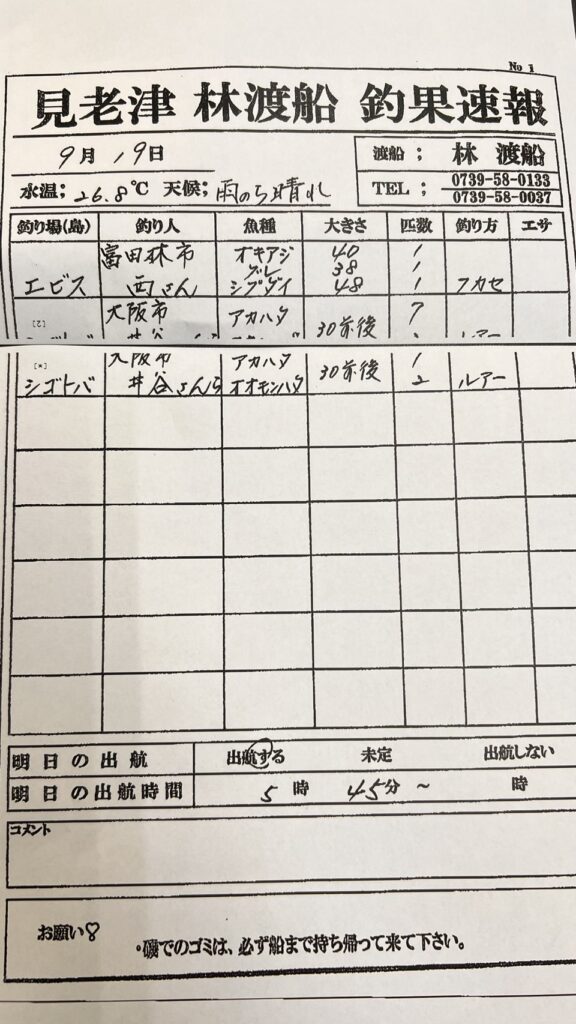 No 1
見老津 林渡船 釣果速報
9月 19日
渡船； 林 渡船
水温； 26.8℃ 天候； 雨のち晴れ
TEL； 0739-58-0133
0739-58-0037
釣り場(島) 釣り人 魚種 大きさ 匹数 釣り方 エサ
富田林市 オキアジ 40 1
グレ 38 1
エビス 西さん シブダイ 48 1 フカセ
大阪市 アカハタ 30前後 7
大阪市 アカハタ 30前後 1
シゴトバ 井谷さんら オオモンハタ 2 ルアー
明日の出航 出航する 未定 出航しない
明日の出航時間 5時 45分 ～ 時
コメント
お願い♡
・磯でのゴミは、必ず船まで持ち帰って来て下さい。